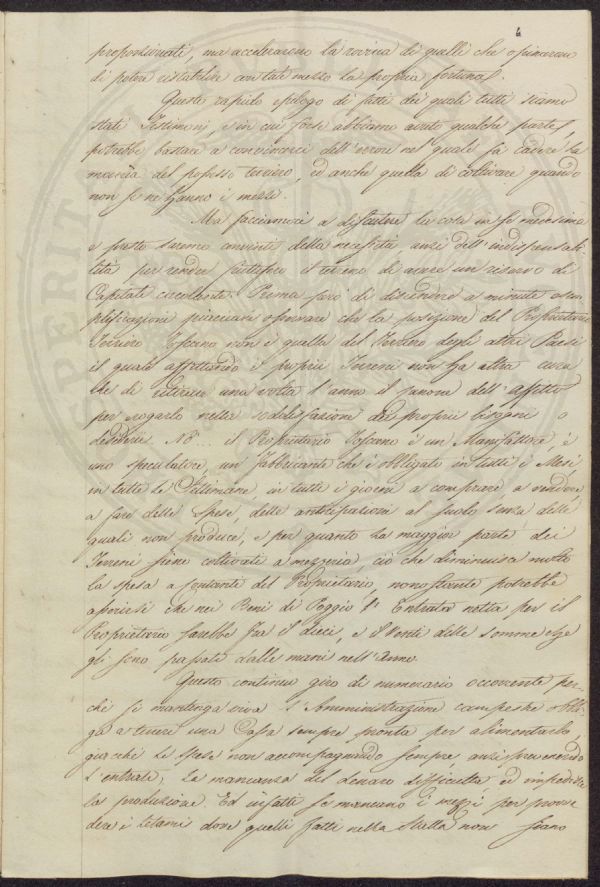 4
proporzionati, ma accelerarono la rovina di quelli che opinarono
di potere ristabilire con tale mezzo la propria fortuna.
Questo rapido epilogo di fatti dei quali tutti siamo
stati Testimoni, e in cui forse abbiamo avuto qualche parte,
potrebbe bastare a convincerci dell'errore nel quale fà cadere la
manìa del possesso terriero, ed anche quella di coltivare quando
non se ne hanno i mezzi.
Ma facciamoci a discutere la cosa in se medesima
e presto saremo convinti della necessità anzi dell'indispensabi-
lità per render fruttifero il terreno di avere un riservo di
Capitale circolante. Prima però di discendere a minute esem-
plificazioni piacciavi osservare che la posizione del Proprietario
Terriero Toscano non è quella del Terriero degli altri Paesi
il quale affittando i proprii Terreni non ha altra cura
che di ritirare una volta l'anno il canone dell'affitto
per erogarlo nella sodisfazione dei proprii bisogni o
desiderii. Nò... il Proprietario Toscano è un Manifattore, è
uno speculatore, un Fabbricante che è obbligato in tutti i Mesi,
in tutte le Settimane, in tutti i giorni a comprare, a vendere
a fare delle Spese, delle anticipazioni al suolo senza delle
quali non produce, e per quanto la maggior parte dei
Terreni siene coltivati a mezzeria, ciò che diminuisce molto
la spesa a contante del Proprietario, nonostante potrebbe
asserirsi che nei Beni di Poggio l'Entrata netta per il
Proprietario sarebbe fra il dieci, e il venti delle somme che
gli sono passate dalle mani nell'Anno.
Questo continuo giro di numerario occorrente per-
chè si mantenga viva l'Amministrazione campestre obbli-
ga a tenere una Cassa sempre pronta per alimentarlo,
giacchè le spese non accompagnando sempre, anzi precorrendo
l'entrate, la mancanza del denaro difficulta, ed impedisce
la produzione. Ed infatti se mancano i mezzi per provve
dere i letami dove quelli fatti nella Stalla non siano